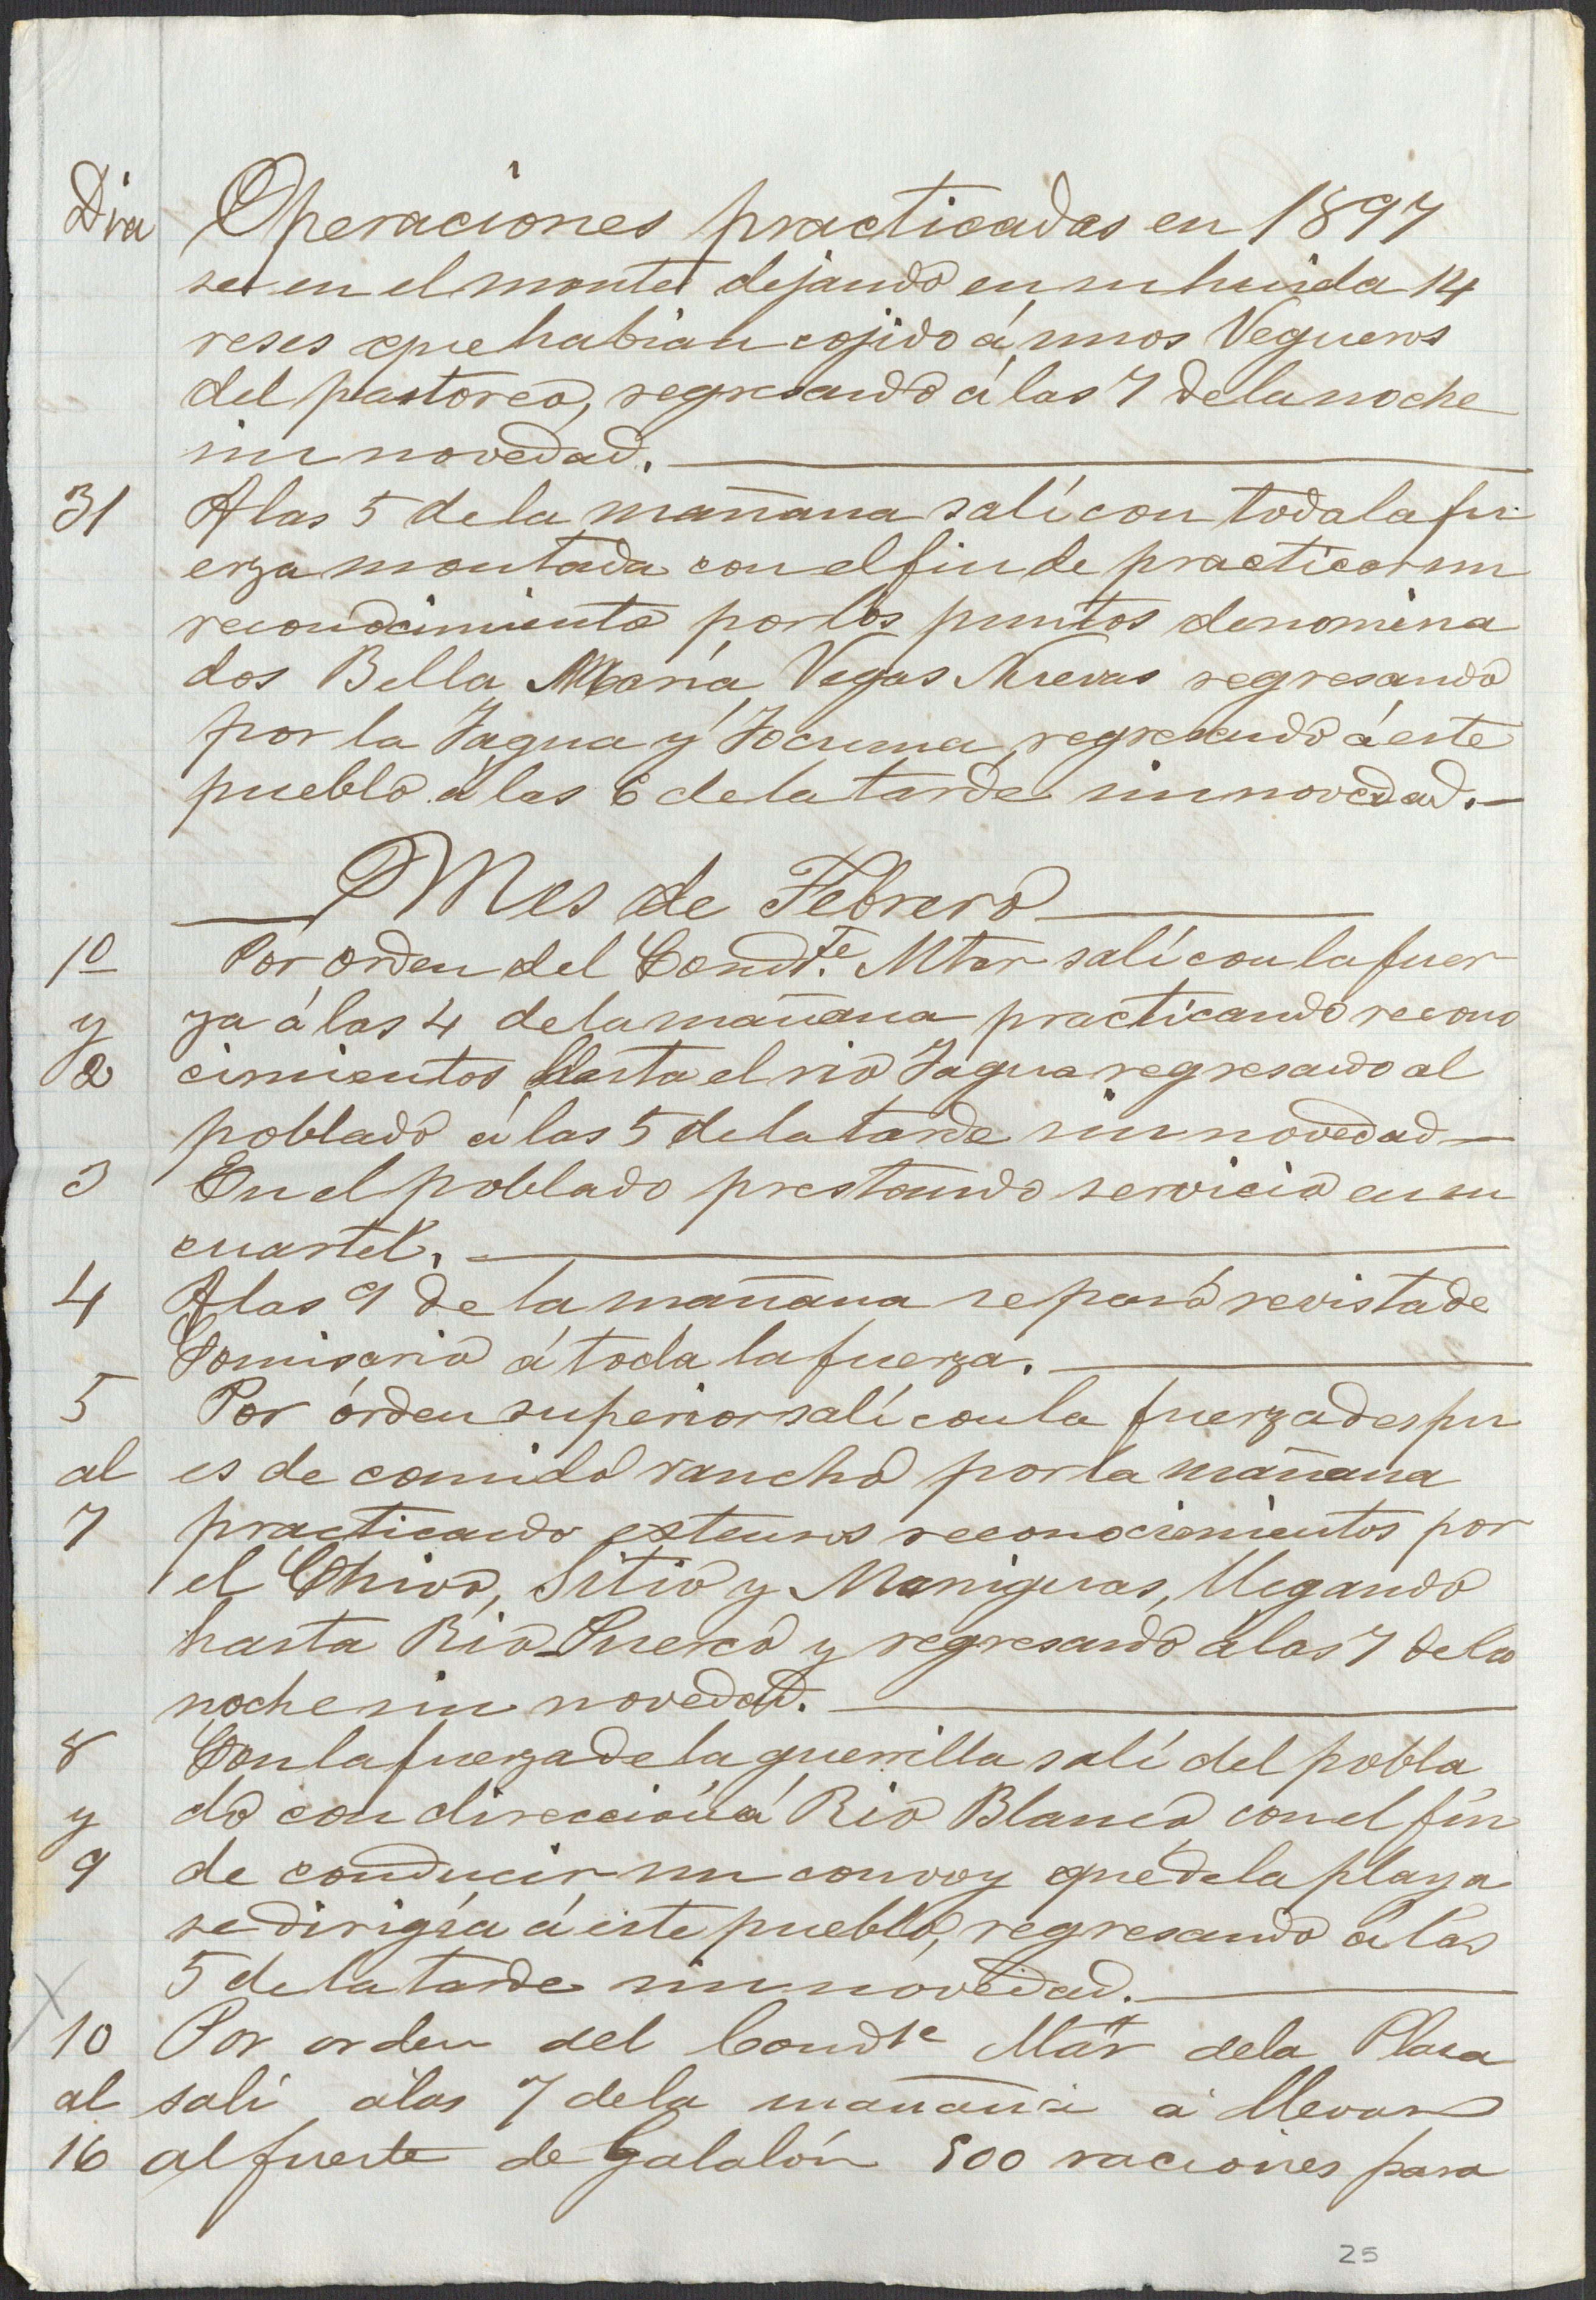 Dia Operaciones practicadas en 1897
se en el monte dejando en su huida 14
reses que habian cojido á unos Vegueros
del pastoreo, regresando á las 7 de la noche
sin novedad.
31 A las 5 de la mañana salí con toda la fu
erza montada con el fin de practicar un
reconocimiento por los puntos denomina
dos Bella María Vegas Nuevas regresando
por la Jagua y Jocuma regresando á este
pueblo á las 6 de la tarde sin novedad.
Mes de Febrero
1º Por orden del Comdte. Mtar salí con la fuer
y za á las 4 de la mañana practicando recono
2 cimientos hasta el rio Jagua regresando al
poblado á las 5 de la tarde sin novedad
3 En el poblado prestando servicio en su
cuartel.
4 A las 9 de la mañana se pasó revista de
Comisario á toda la fuerza.
5 Por órden superior salí con la fuerza despu
al es de comido rancho por la mañana
7 practicando extensos reconocimientos por
el Chivo, Sitio y Maniguas, llegando
hasta Rio Puerco y regresando á las 7 de la
noche sin novedad.
8 Con la fuerza de la guerrilla salí del pobla
y do con direccióná Rio Blanco con el fin
9 de conducir un convoy que de la playa
se dirigía á este pueblo, regresando á las
5 de la tarde sin novedad.
10 Por orden del Comdte Mtar de la Plaza
al salí á las 7 de la mañana á llevar
16 al fuerte de Galalón 500 raciones para
25